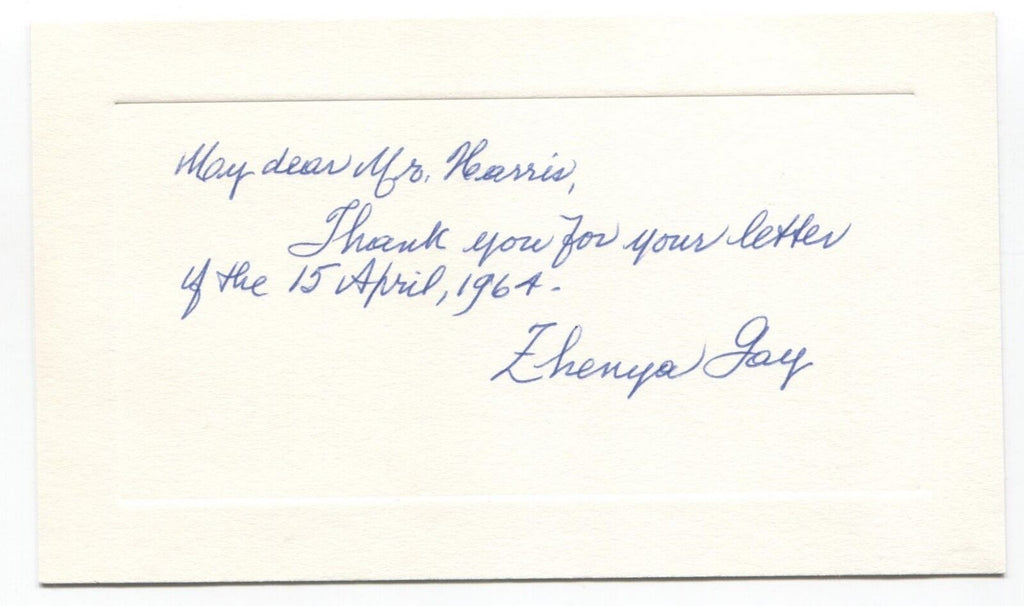 May dear Mr. Harris,
Thank you for your letter
of the 15 April, 1964.
Zhenya Gay